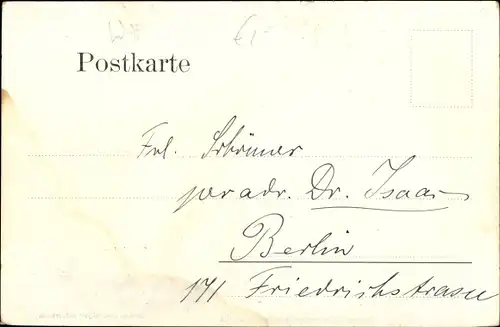 Postkarte
Frl. Schirmer
per adr. Dr. Isaac
Berlin
171 Friedrichstrasse